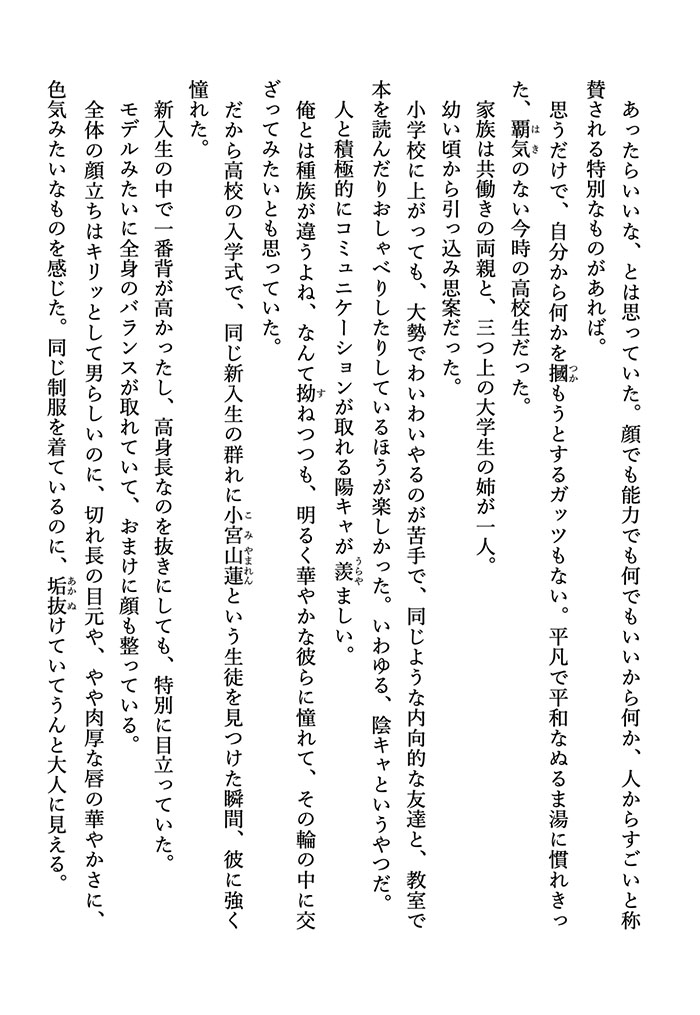 あったらいいな、とは思っていた。顔でも能力でも何でもいいから何か、人からすごいと称
賛される特別なものがあれば。
思うだけで、自分から何かを摑もうとするガッツもない。平凡で平和なぬるま湯に慣れきっ
た、覇気のない今時の高校生だった。
家族は共働きの両親と、三つ上の大学生の姉が一人。
幼い頃から引っ込み思案だった。
小学校に上がっても、大勢でわいわいやるのが苦手で、同じような内向的な友達と、教室で
本を読んだりおしゃべりしたりしているほうが楽しかった。いわゆる、陰キャというやつだ。
人と積極的にコミュニケーションが取れる陽キャが羨ましい。
俺とは種族が違うよね、なんて拗ねつつも、明るく華やかな彼らに憧れて、その輪の中に交
ざってみたいとも思っていた。
だから高校の入学式で、同じ新入生の群れに小宮山蓮という生徒を見つけた瞬間、彼に強く
憧れた。
新入生の中で一番背が高かったし、高身長なのを抜きにしても、特別に目立っていた。
モデルみたいに全身のバランスが取れていて、おまけに顔も整っている。
全体の顔立ちはキリッとして男らしいのに、切れ長の目元や、やや肉厚な唇の華やかさに、
色気みたいなものを感じた。同じ制服を着ているのに、垢抜けていてうんと大人に見える。